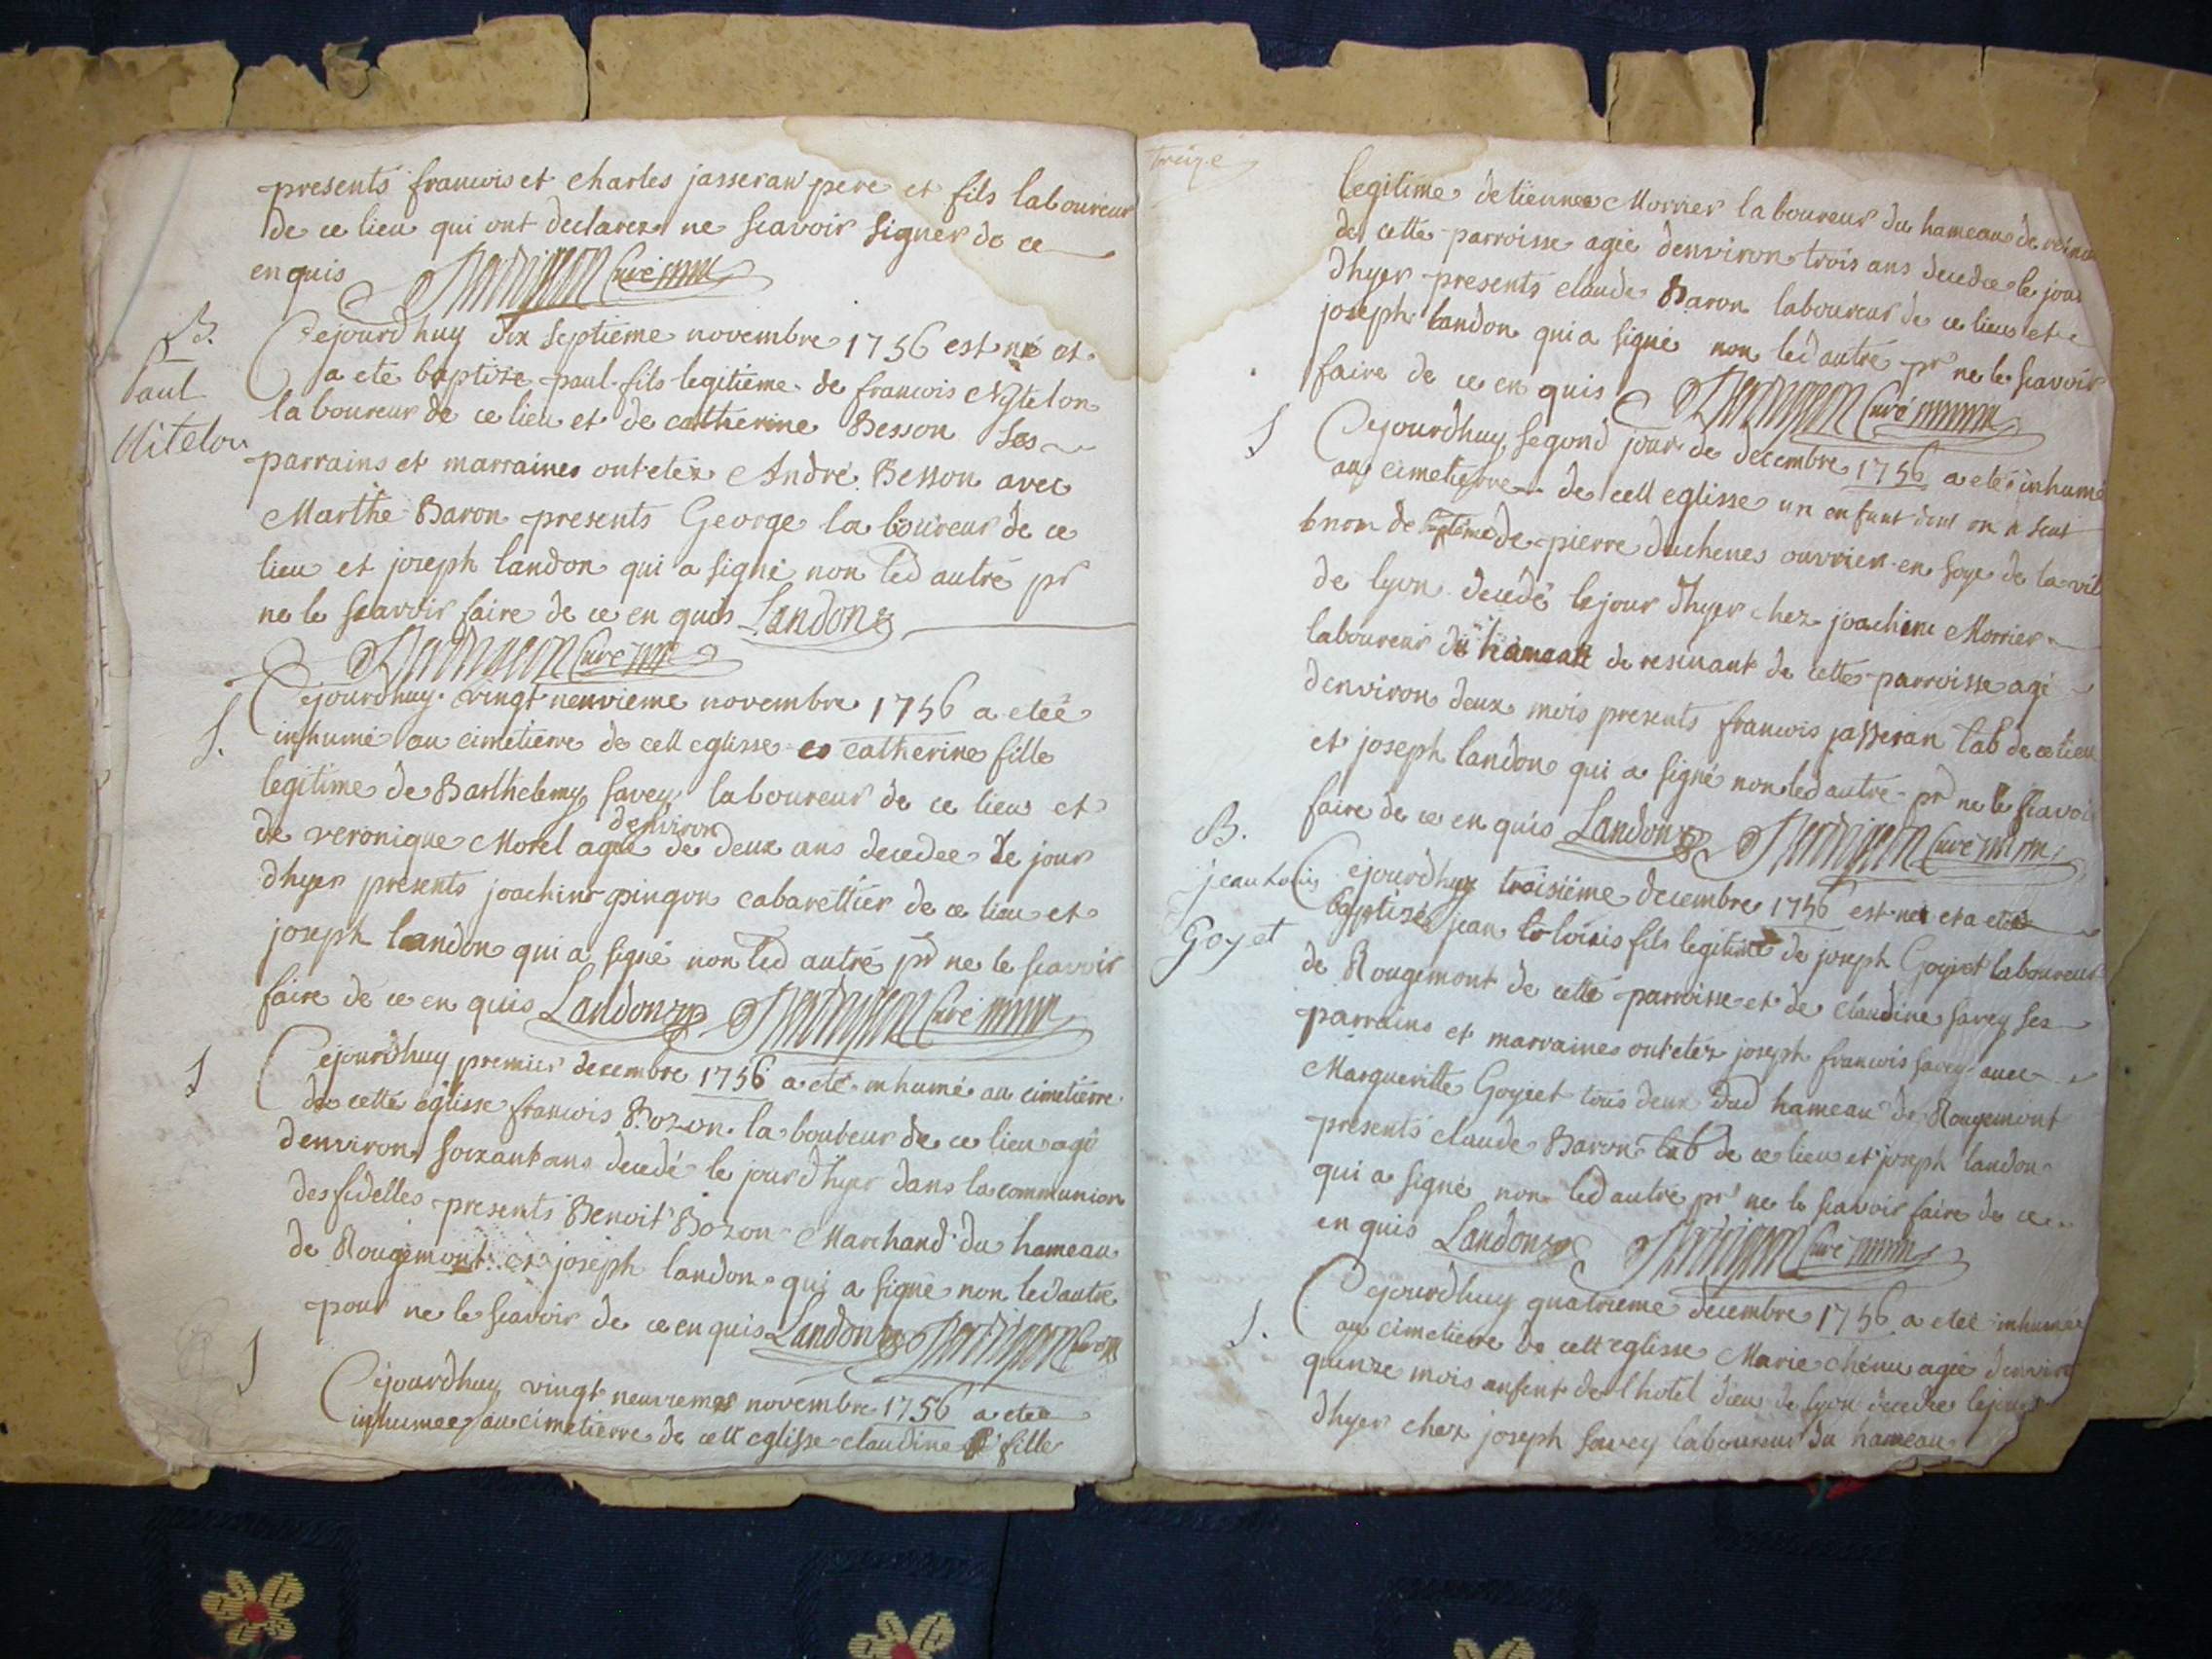 presents francois et charles jasseran pere et fils laboureur
de ce lieu qui ont declarez ne scavoir signer de ce
enquis curé
B.
Paul
Nitelon
Cejourdhuy dix septieme novembre 1756 est né et
a eté baptize paul fils legitieme de francois Nytelon
laboureur de ce lieu et de catherine Besson ses
parrains et marraines ont etéz André Besson avec
Marthe Baron presents George laboureur de ce
lieu et joseph landon qui a signé non led autre pr
ne le scavoir faire de ce en quis Landon
curé
S.
Cejourdhuy vingt neuvieme novembre 1756 a eteé
inhumé au cimetierre de cett eglisse catherine fille
legitime de Barthelemy savey laboureur de ce lieu et
denviron
de veronique Morel ageé de deux ans decedee le jour
dhyer presents joachim pingon cabarettier de ce lieu et
joseph landon qui a signé non led autre pr ne le scavoir
faire de ce en quis Landon curé
S
Cejourdhuy premier decembre 1756 a eté inhumé au cimetierre
de cette eglisse francois Bozon laboureur de ce lieu agé
denviron soixant ans decedé le jour dhyer dans la communion
des fidelles presents Benoit Bozon Marchand du hameau
de Rougemont et joseph landon qui a signé non led autre
pour ne le scavoir de ce en quis Landon curé
S
Cejourdhuy vingt neuvieme novembre 1756 a eteé
inhumeé au cimetierre de cett eglisse claudine fille
treize
legitime detienne Morrier laboureur du hameau de
de cette parroisse agée denviron trois ans decedee le jour
dhyer presents claude Baron laboureur de ce lieu et
joseph landon qui a signé non led autre pr ne le scavoir
faire de ce en quis curé
S
Cejourdhuy segond jour de decembre 1756 a eté inhumé
au cimetierre de cett eglisse un enfant dont on n scut
le nom de de pierre duchenes ouvrier en soye de la vil
de lyon decedé le jour dhyer chez joachim Morrier
laboureur du hameau de resinant de cette parroisse agé
denviron deux mois presents francois jasseran lab de ce lieu
et joseph landon qui a signé non led autre pr ne le scavoi
faire de ce en quis Landon curé
B.
jean Louis
Goyet
Cejourdhuy troisiéme decembre 1756 est né et a eté
baptizé jean loüis fils legitime de joseph Goyet laboureur
de Rougemont de cette parroisse et de claudine savey ses
parrains et marraines ont etéz joseph francois savey avec
Margueritte Goyet tous deux dud hameau de Rougemont
presents claude Baron lab de ce lieu et joseph landon
qui a signé non led autre pr ne le scavoir faire de ce
en quis Landon curé
S.
Cejourdhuy quatrieme decembre 1756 a eteé inhumeé
au cimetierre de cett eglisse Marie chenu agée denviro
quinze mois enfent de l hotel dieu de lyon decedee le jour
dhyer chez joseph savey laboureur du hameau